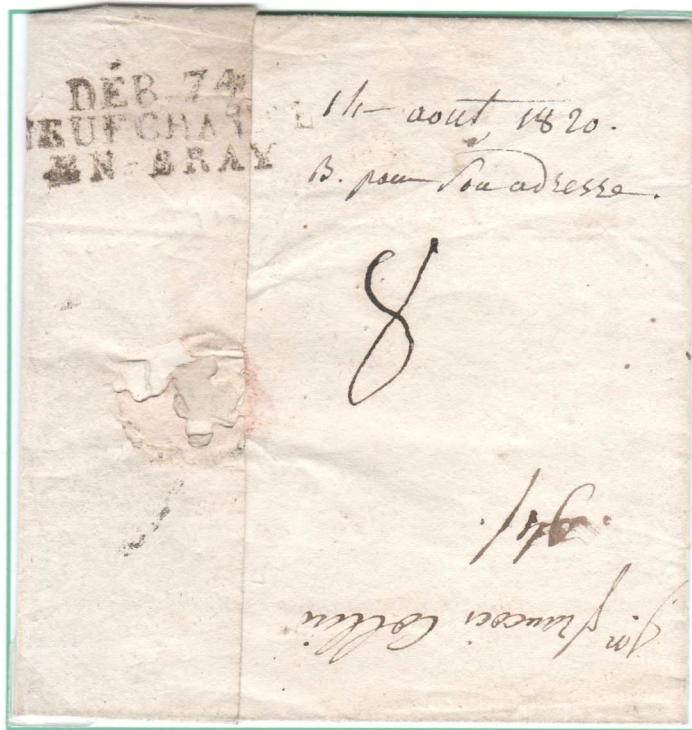 DÉB. 74
NEUFCHATEL
EN-BRAY
14 août 1820.
B. pour son adresse.
8
françois Collin